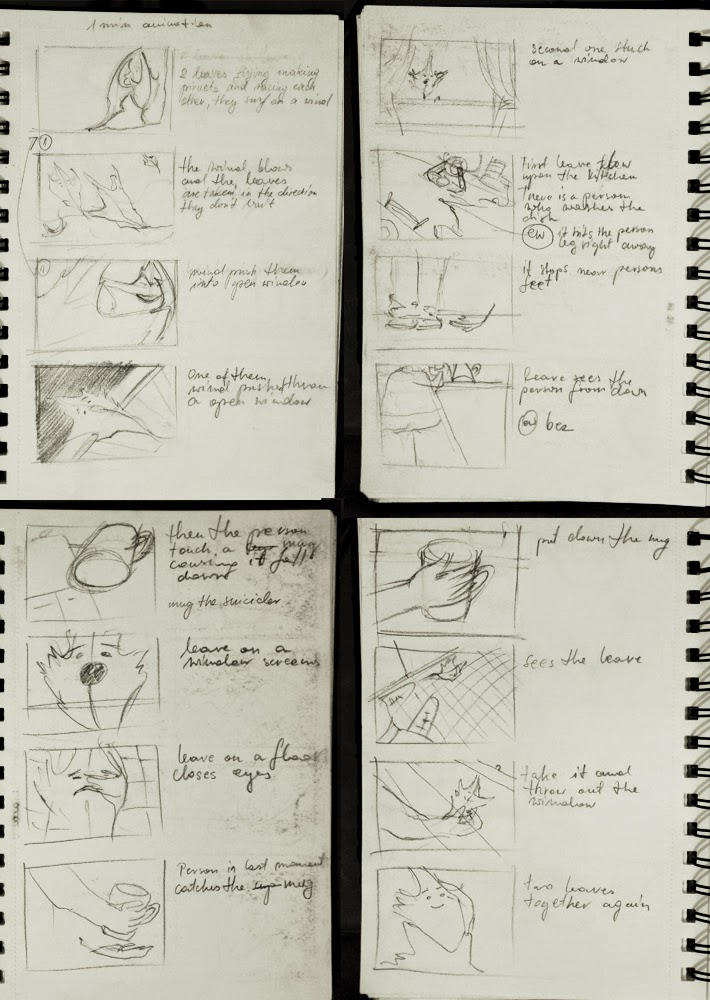 1 min animation
2 leaves flying making
pirouets and racing each
other, they surf on a wind
1
the wind blows
and the leaves
are taken in the direction
they don't wait
1
wind push them
into open window
One of them
wind pushed throw
a open window
second one stuck
on a window
First leave flow
upon the kitchen
There is a person
who washes the
dish
it hits the person
leg right away
it stops near persons
feet
Leave sees the
person from down
then the person
touch a mug
causing it fall
down
mug the suicider
leave on a
window screams
leave on a floor
closes eyes
Person in last moment
catches the mug
put down the mug
sees the leave
take it and
throw out the
window
two leaves
together again